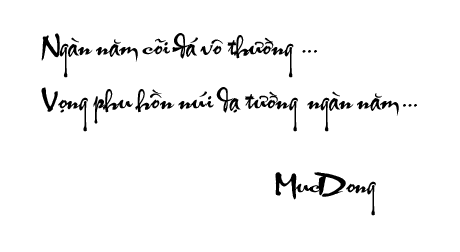 Ngàn năm cõi đá vô thường ...
Vọng phu hồn núi dạ tường ngàn năm...
MucDong